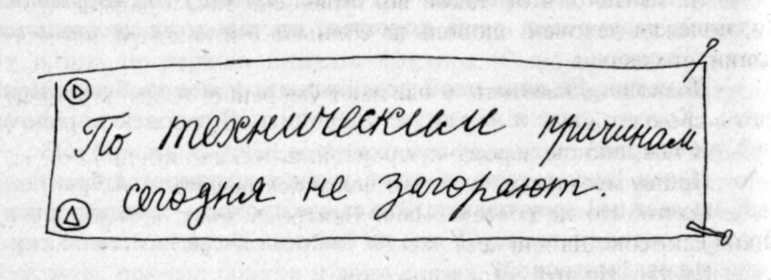 По техническим причинам
сегодня не загорают.